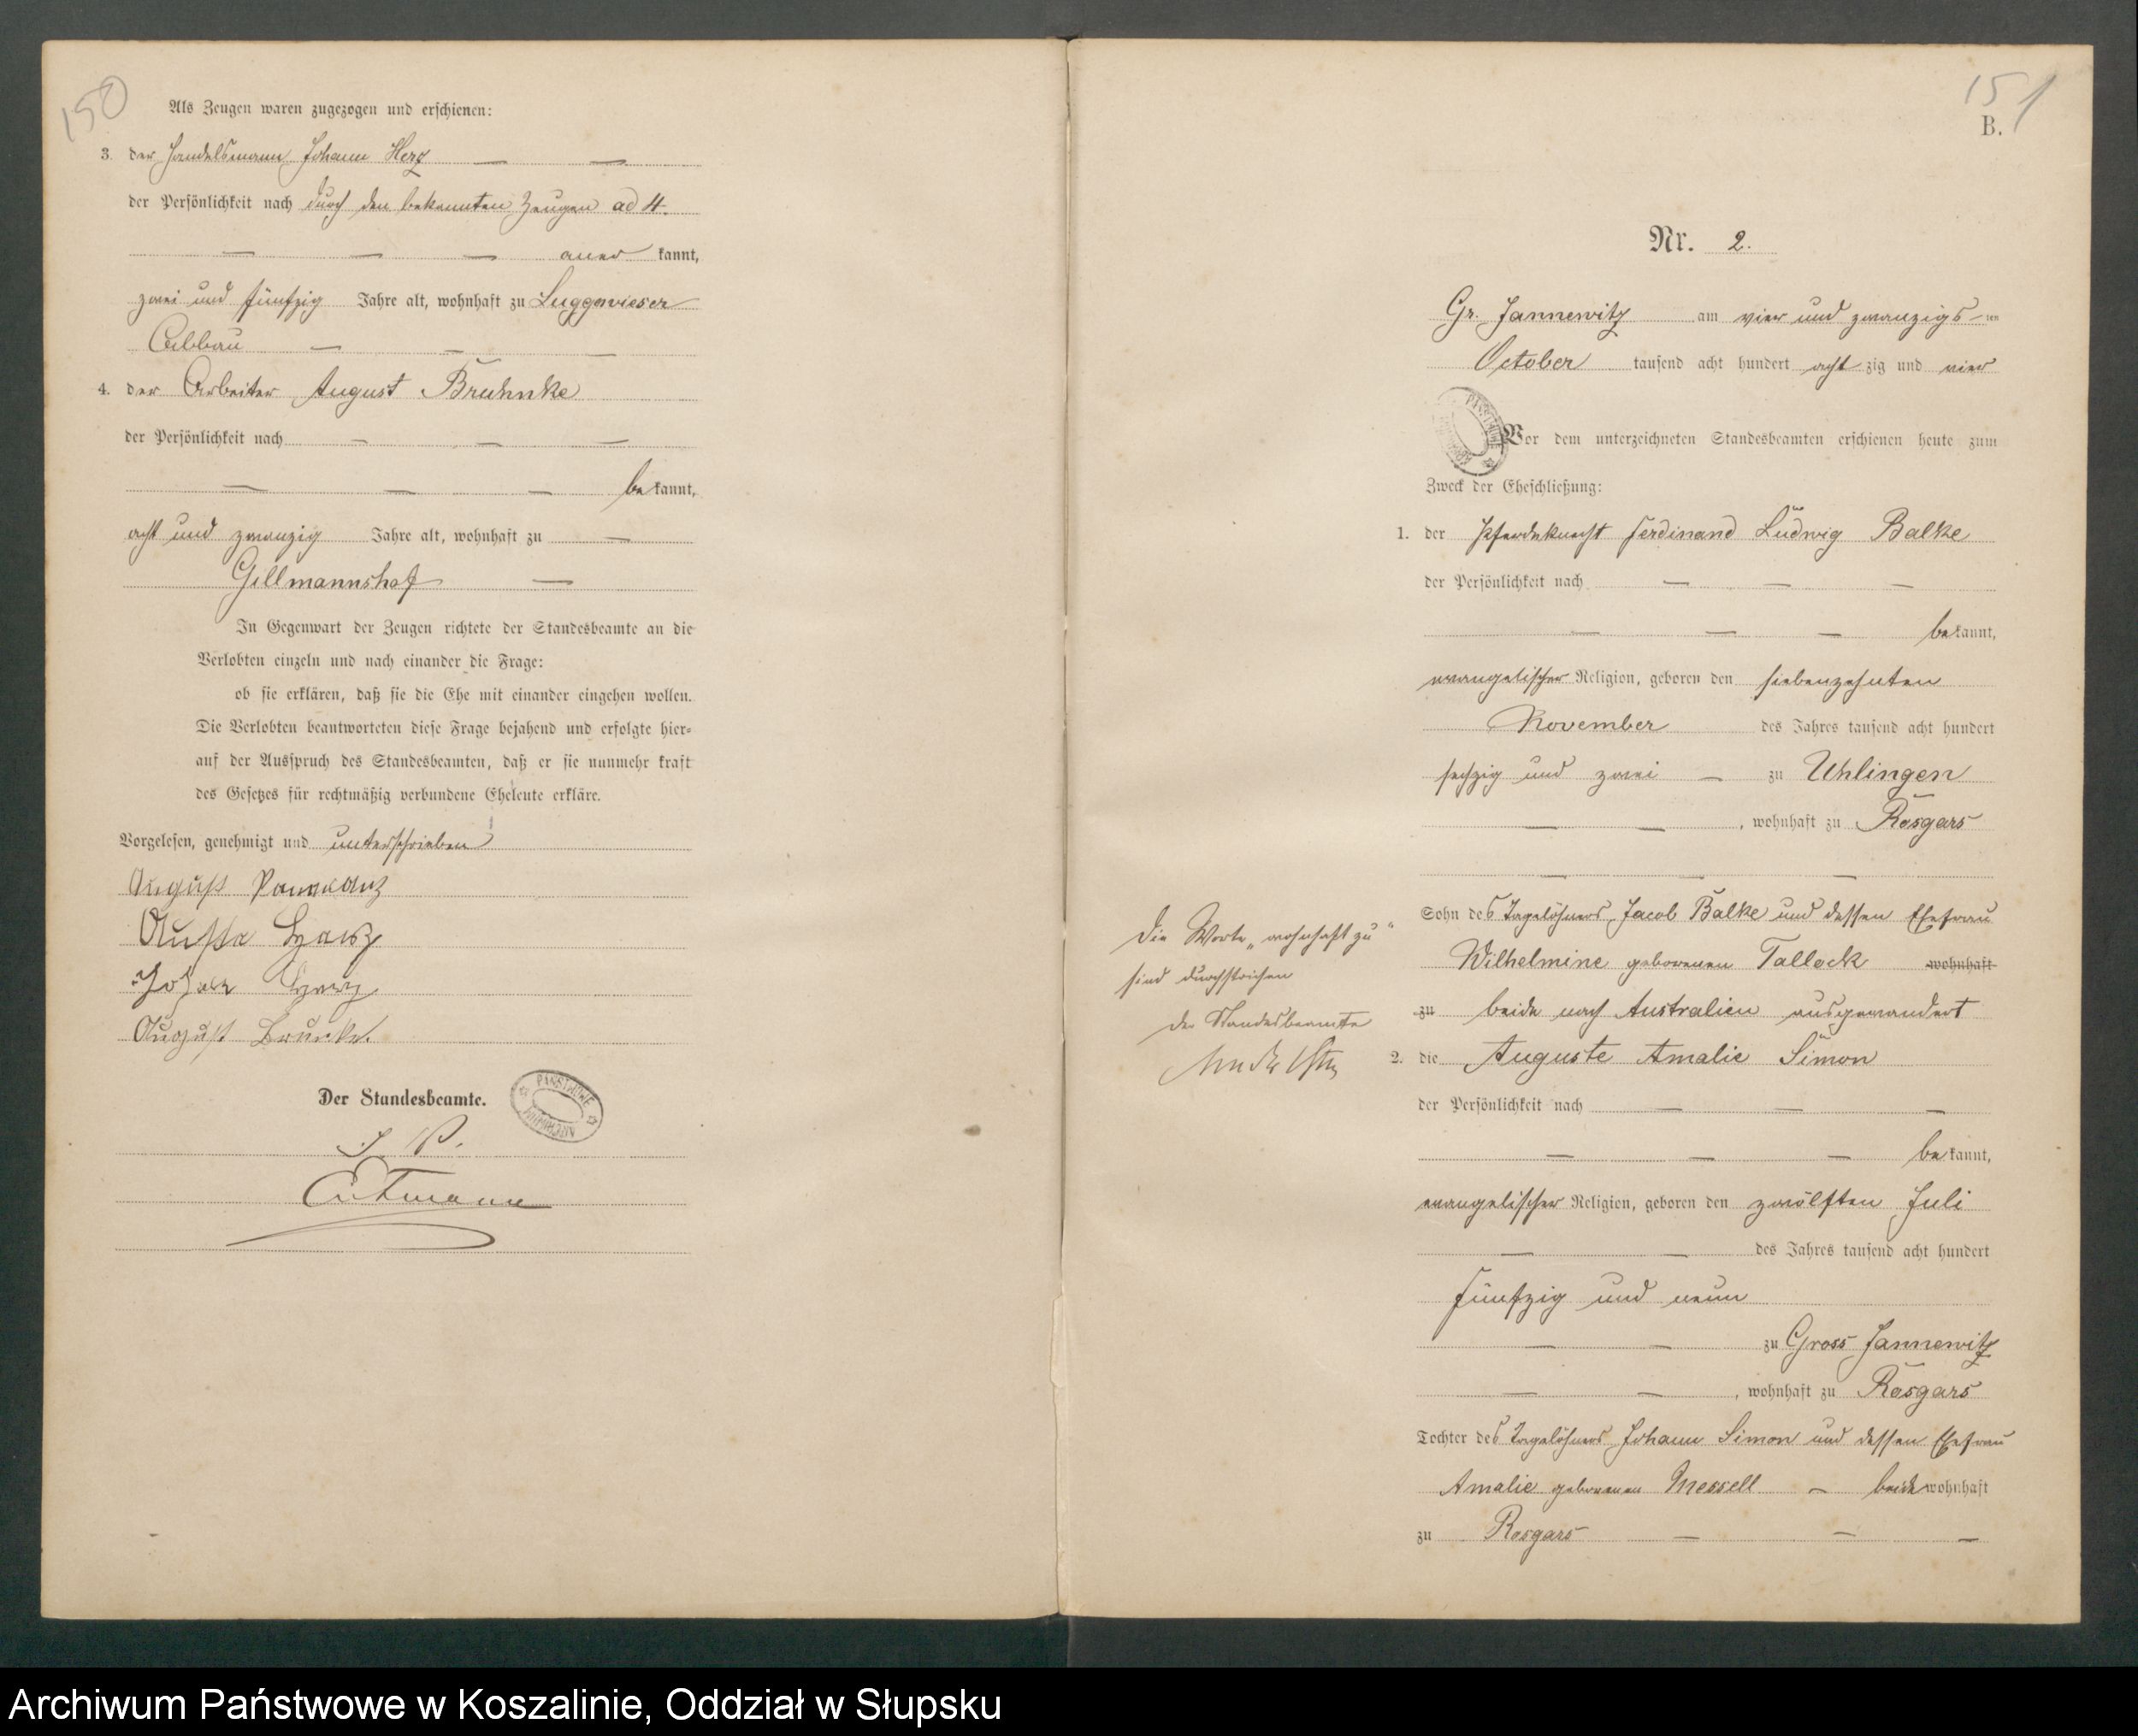 150
Als Zeugen waren zugezogen und erschienen:
3. der Handelsmann Johann Herz
der Persönlichkeit nach durch den bekannten Zeugen ad 4.
aner kannt,
zwei und fünfzig Jahre alt, wohnhaft zu Luggewieser
Abbau
4. der Arbeiter August Bruhnke
der Persönlichkeit nach
be kannt,
acht und zwanzig Jahre alt, wohnhaft zu
Gillmannshof
In Gegenwart der Zeugen richtete der Standesbeamte an die
Verlobten einzeln und nach einander die Frage:
ob sie erklären, daß sie die Ehe mit einander eingehen wollen.
Die Verlobten beantworteten diese Frage bejahend und erfolgte hier-
auf der Ausspruch des Standesbeamten, daß er sie nunmehr kraft
des Gesetzes für rechtmäßig verbundene Eheleute erkläre.
Vorgelesen, genehmigt und unterschrieben
August
Herz
Johann Herz
August
Der Standesbeamte.
PAŃSTWOWE ARCHIWUM
151
B.
Nr. 2.
Gr. Jannewitz am vier und zwanzigs-ten
October tausend acht hundert acht zig und vier
Vor dem unterzeichneten Standesbeamten erschienen heute zum
Zweck der Eheschließung:
1. der Pferdeknecht Ferdinand Ludwig Balke
der Persönlichkeit nach
be kannt,
evangelischer Religion, geboren den siebenzehnten
November des Jahres tausend acht hundert
sechzig und zwei zu Uhlingen
, wohnhaft zu Rosgars
Sohn des Tagelöhners Jacob Balke und dessen Ehefrau
Wilhelmine geborenen Tallock wohnhaft
zu beide nach Australien ausgewandert
Die Worte „wohnhaft zu“
sind durchstrichen
Der Standesbeamte
2. die Auguste Amalie Simon
der Persönlichkeit nach
be kannt,
evangelischer Religion, geboren den zwölften Juli
des Jahres tausend acht hundert
fünfzig und neun
zu Gross Jannewitz
, wohnhaft zu Rosgars
Tochter des Tagelöhners Johann Simon und dessen Ehefrau
Amalie geborenen Messell beide wohnhaft
zu Rosgars
Archiwum Państwowe w Koszalinie, Oddział w Słupsku